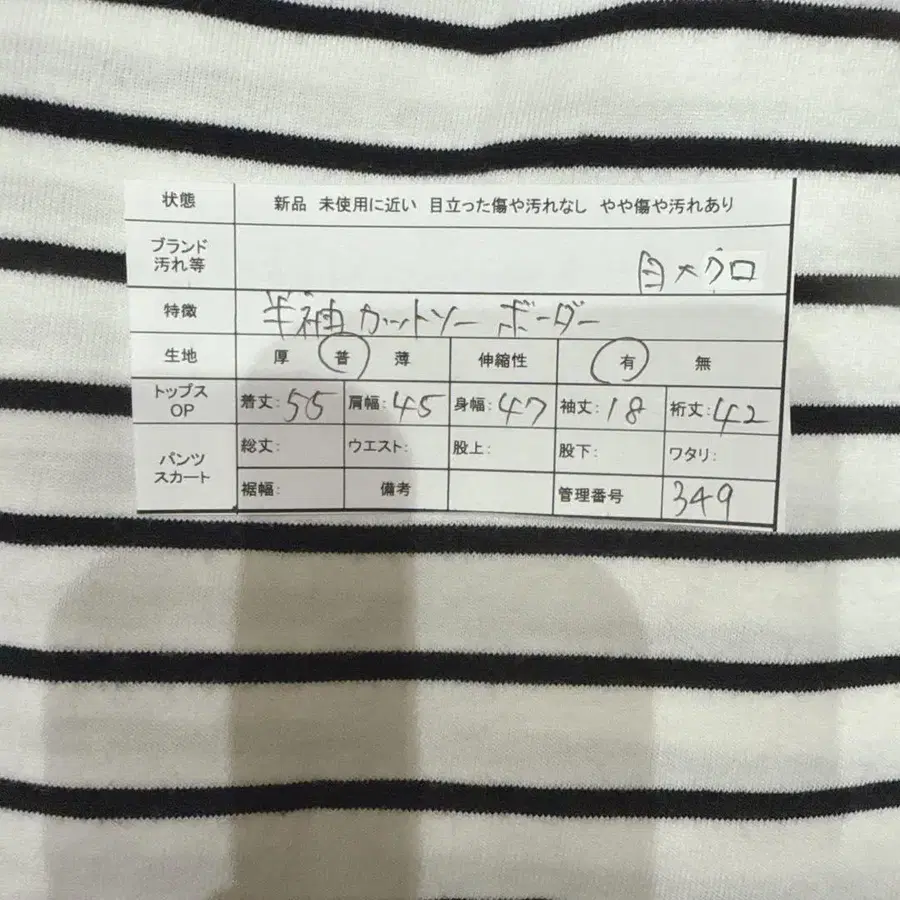 状態 新品 未使用に近い 目立った傷や汚れなし やや傷や汚れあり
ブランド
汚れ等
白×クロ
特徴 半袖カットソー ボーダー
生地 厚 普 薄 伸縮性 有 無
トップス
OP
着丈:55 肩幅:45 身幅:47 袖丈:18 裄丈:42
パンツ
スカート
総丈: ウエスト: 股上: 股下: ワタリ:
裾幅: 備考 管理番号 349